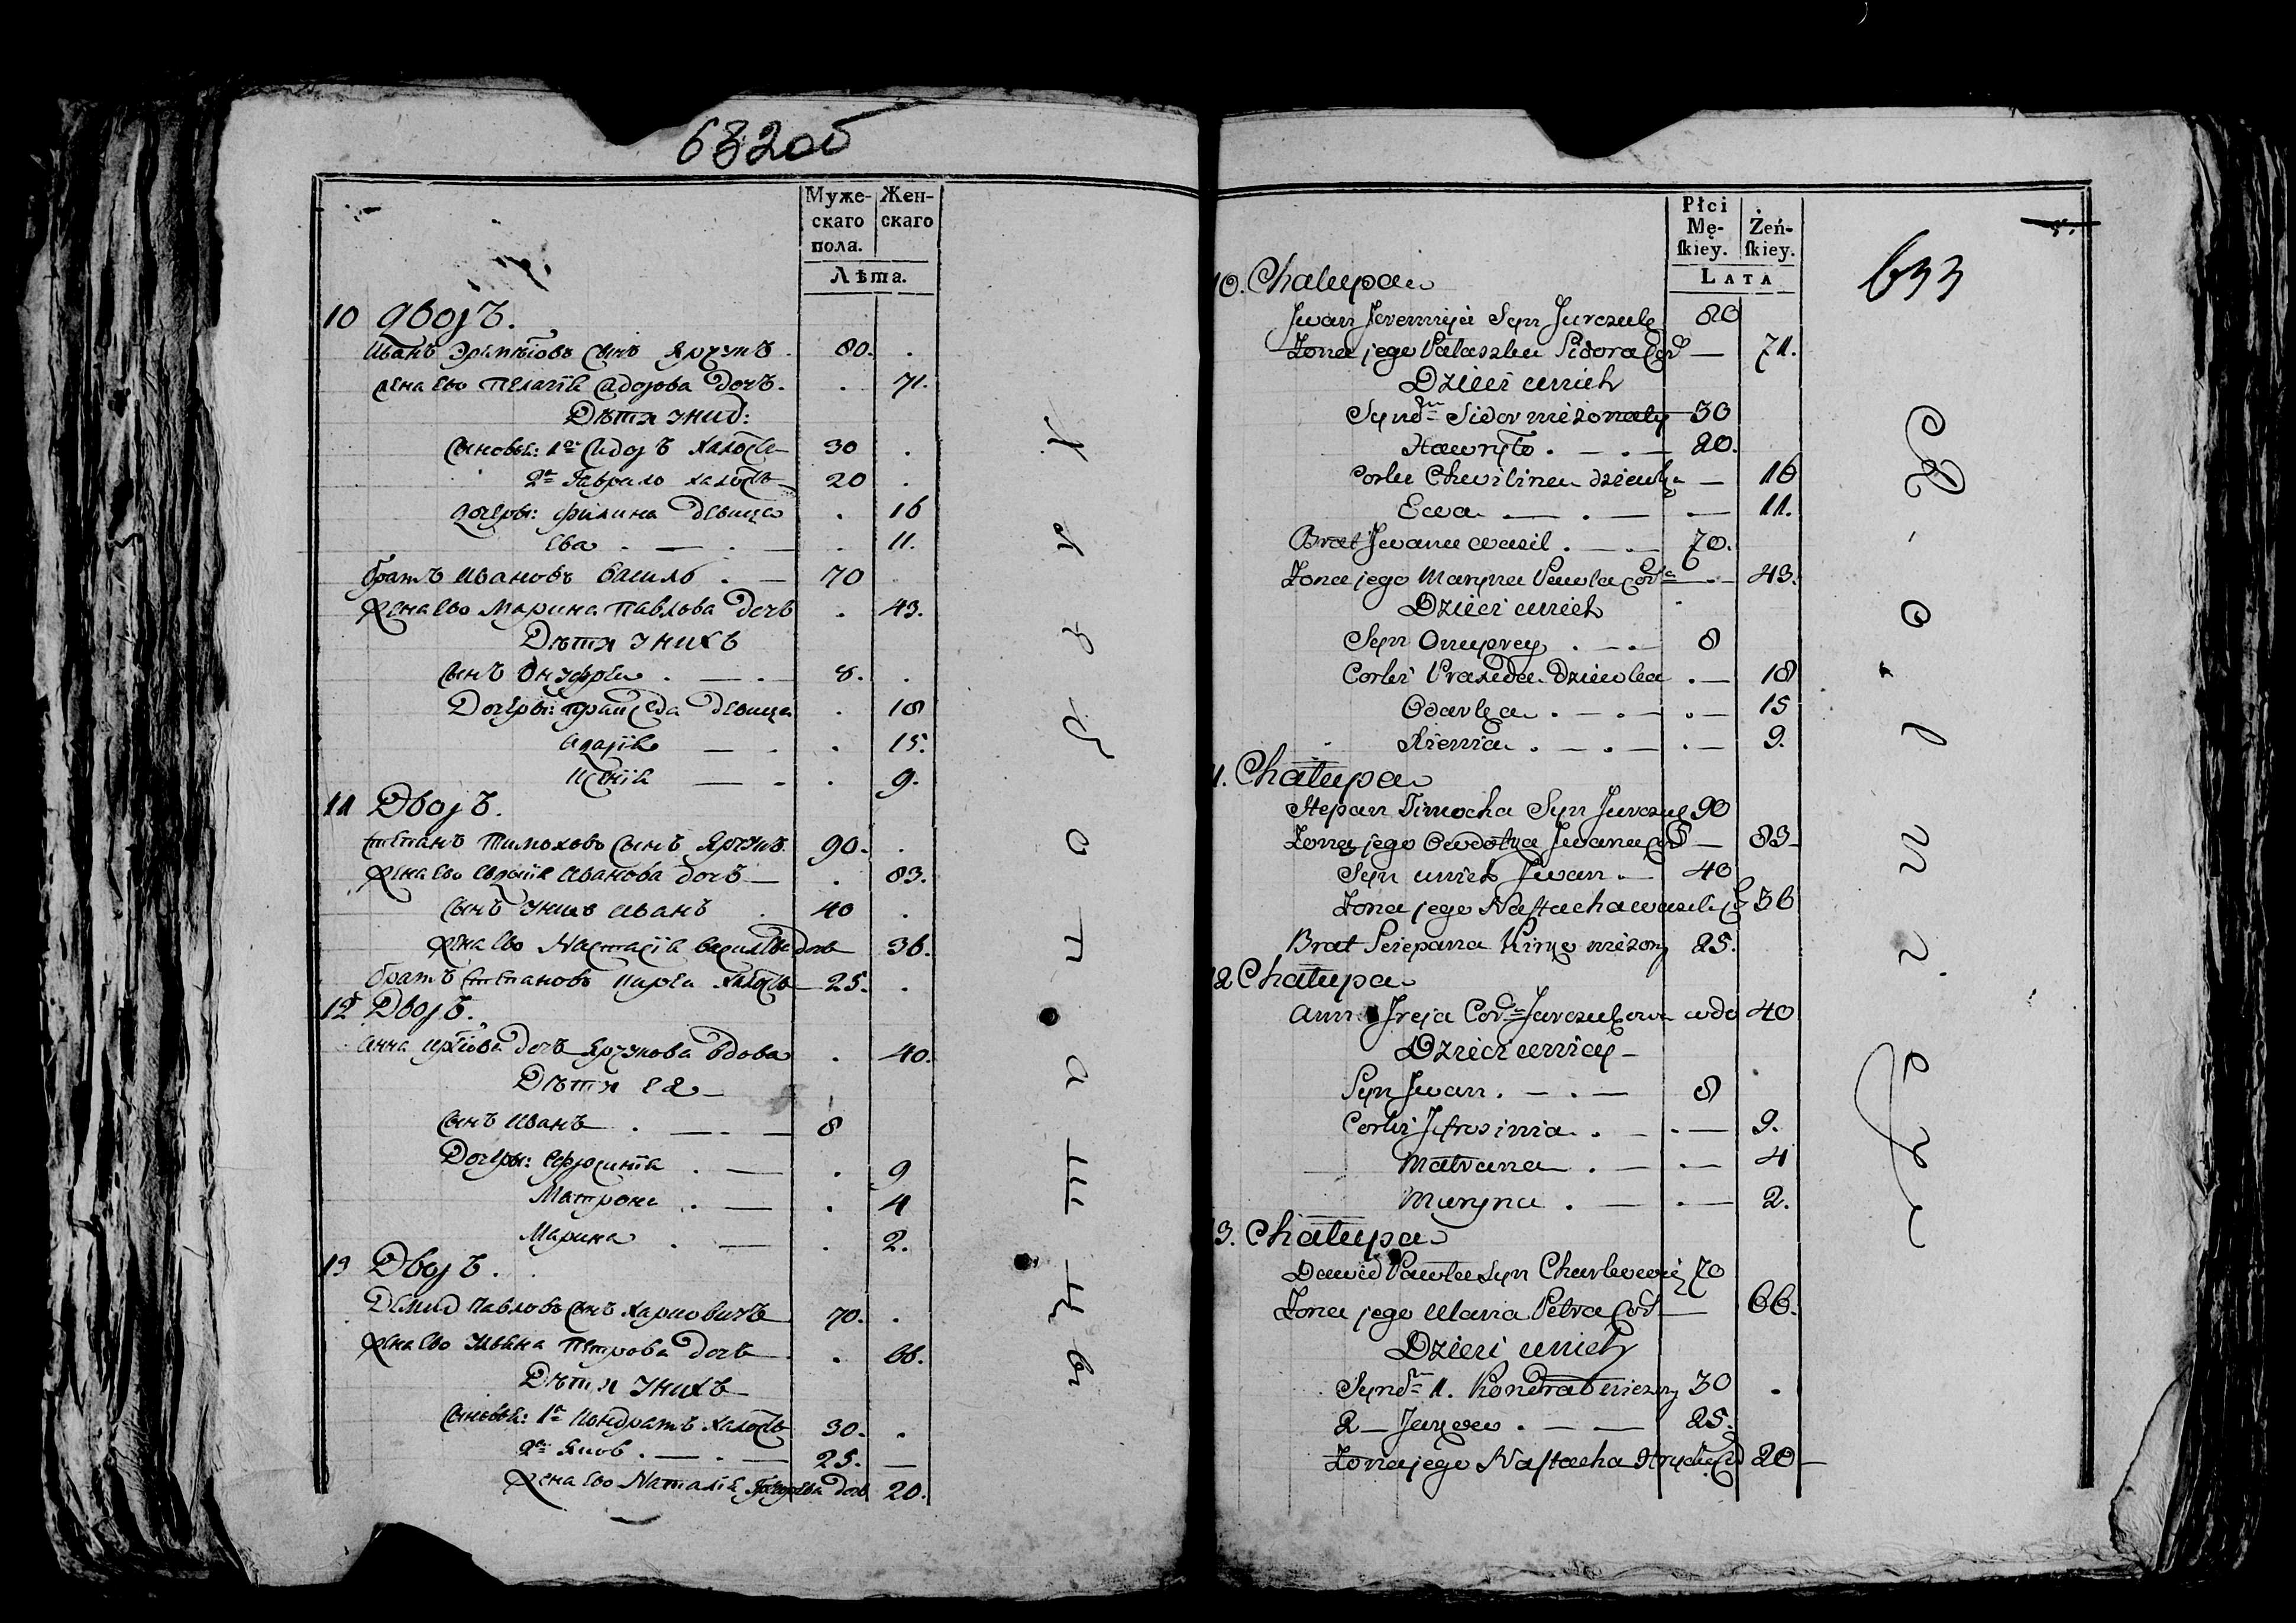 632об
Муже-
скаго
пола.
Жен-
скаго
Лѣта.
10 Дворъ.
Иванъ Еремѣювъ сынъ Ярчукъ . 80. .
жена ево Пелагѣя Сидорова дочъ . . 71.
Дѣти у нид:
сыновья: 1й Сидоръ халость 30 .
2й Гаврило халость 20 .
дочеры: Филина девица . 16
Ева . — . — . 11.
братъ Ивановъ Василь . — 70 .
жена ево Марина Павлова дочь . 43.
Дѣти у нихъ
сынъ Онуфрѣи . — . 8. .
Дочеры: Праиседа девица . 18
— . . 15.
Ксенія — . . 9.
11 Дворъ.
Степанъ Тимоховъ сынъ Ярчукъ 90. .
жена ево Иванова дочъ — . 83.
сынъ у нихъ Иванъ . 40 .
жена ево Настасія Василева дочь 36.
братъ Степановъ Кирѣи халость 25. .
12 Дворъ.
Анна дочъ Ярчукова вдова . 40.
Дѣти ея
сынъ Иванъ . — . — 8
Дочеры: Ефросинія . — . 9
Матрона . — . 4
Марина . — . 2.
13 Дворъ.
Демид Павловъ сынъ Харковичъ 70. .
жена ево Ульяна Петрова дочь . . 66.
Дѣти у нихъ
сыновья: 1й Кондратъ халость 30. .
2й Яков . — . — 25. —
жена ево Наталія дочь 20.
Нѣтъ
Płci
Mę-
ſkiey.
Żeń-
ſkiey.
LATA
633
10. Chałupa
Jwan Jeremieja Syn Jurczuk 80
Zona jego Pałaszka Sidora Cor — 71.
Dzieci unich
Synow Sidor nieżonaty 30
Hawryło . — . — 20.
Corki Chwilina dziewka — 16
Ewa — . — . — 11.
Brat Jwana Wasil . — . — 70.
Zona jego Maryna Pawła Corka — . — 43.
Dzieci unich
Syn Onuprey . — . — 8
Corki Praxeda Dziewka . — 18
Odarka . — . — . — 15
Xienia . — . — . — 9.
11. Chałupa
Stepan Timocha Syn Jurczuk 90
Zona jego Owdotya Jwana Cor — 83
Syn unich Jwan — 40
Zona jego Nastacha Wasila C 36
Brat Sciepana Kirey nieżony 25.
12 Chałupa
Anna Cor Jurczukowa wdo 40
Dzieci unicy
Syn Jwan . — . — 8
Corki Jefrosinia . — . — 9.
Matrana . — . — 4
Maryna . — . — 2.
13. Chałupa
Dawid Pawła Syn Charkowicz 70
Zona jego Ulana Petra Cor — 66.
Dzieci unich
Synow 1. Kondrat nieżony 30 .
2 — Jakow . — — 25.
Zona jego Nastacha Cor 20 —